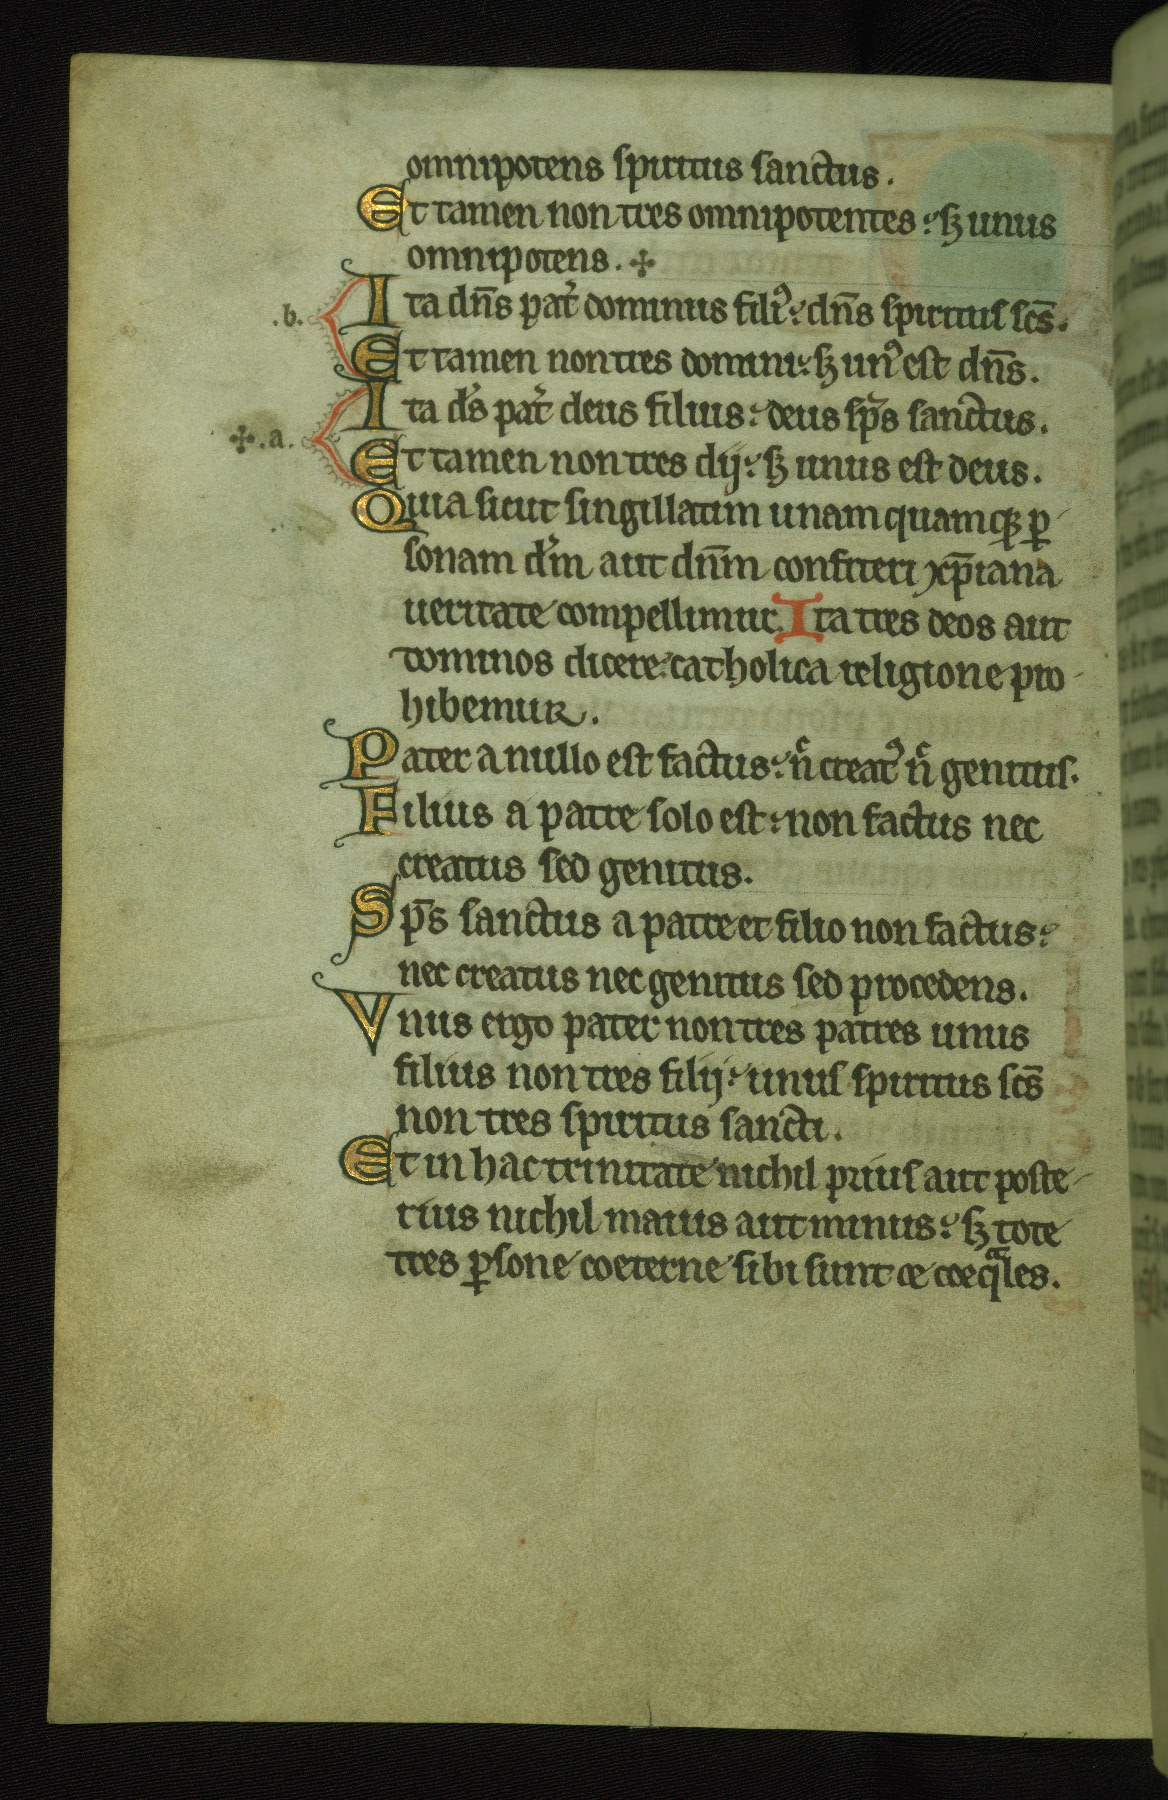 omnipotens spiritus sanctus.
Et tamen non tres omnipotentes: sꝫ unus
omnipotens. ✣
.b. Ita dn̄s pat̉ dominus filiꝰ: dn̄s spiritus sc̄s.
Et tamen non tres domini: sꝫ unꝰ est dn̄s.
✣ .a. Ita ds̉ pat̉ deus filius: deus sp̄s sanctus.
Et tamen non tres dij: sꝫ unus est deus.
Quia sicut singillatim unamquamqꝫ ꝑ
sonam dm̉ aut dn̄m confiteri xp̄iana
ueritate compellimur. Ita tres deos aut
dominos dicere: catholica religione pro
hibemur.
Pater a nullo est factus: n̉ creatꝰ n̉ genitus.
Filius a patre solo est: non factus nec
creatus sed genitus.
Sp̄s sanctus a patre et filio non factus:
nec creatus nec genitus sed procedens.
Vnus ergo pater non tres patres unus
filius non tres filij: unus spiritus sc̄s
non tres spiritus sancti.
Et in hac trinitate nichil prius aut poste
rius nichil maius aut minus: sꝫ tote
tres ꝑsone coeterne sibi sunt ce coeqᷓles.